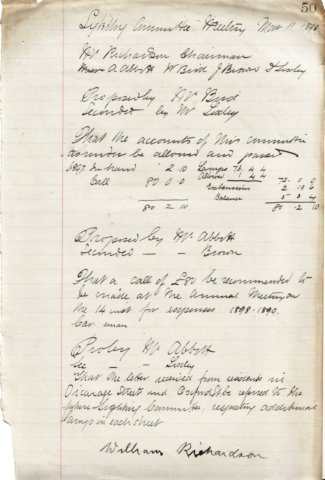 50
Lighting Committee Meeting Mar 11 1898
Mr Richardson Chairman
Messrs A Abbott W Bird J Brown & Lixley
Proposed by Mr Bird
Seconded by Mr Lixley
That the accounts of this committee
as under be allowed and passed
1897 In hand 2 10 Lamps 73. 4 4
Call 80 0. 0 72. 0 0
Extensions 2 19
Balance 5 3
80 2 10 80 .2 10
Proposed by Mr Abbott
Seconded - - Brown
That a call of £80 be recommended to
be made at the Annual Meeting on
the 14 inst for expenses 1898-1890.
Car. unan
Pro by Mr Abbott
Sec - - Lixley
That the letter received from residents in
Vicarage Street and be referred to the
future Lighting Committee, respecting additional
lamps in each street
William Richardson